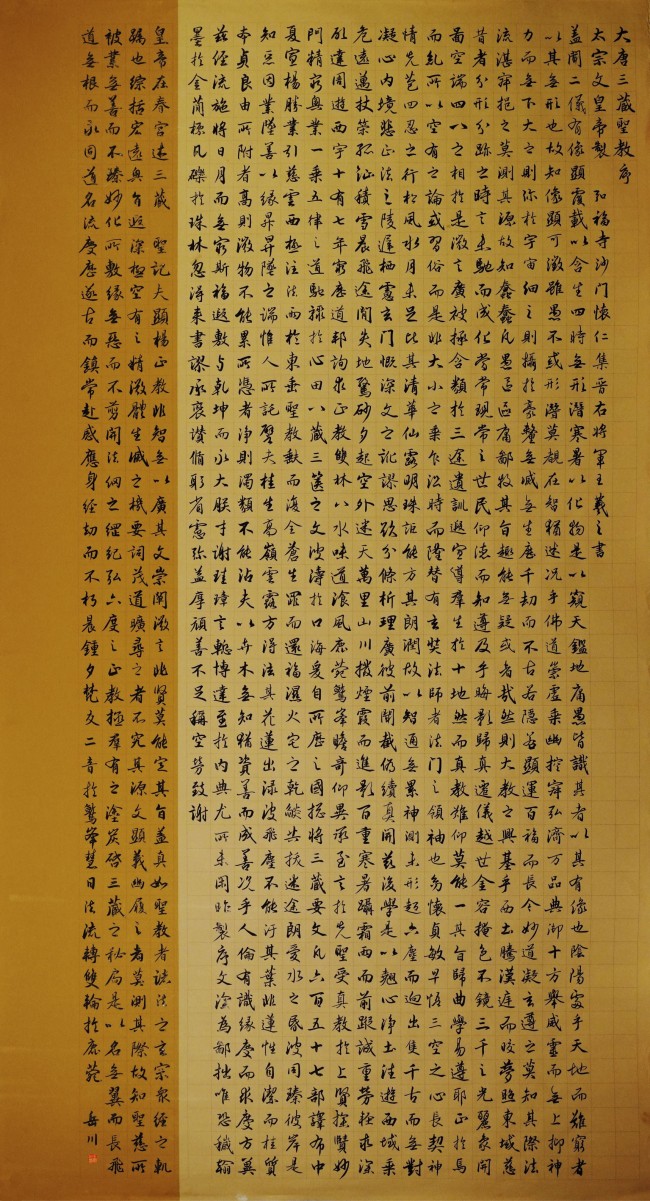 大唐三藏聖教序
太宗文皇帝製 弘福寺沙門懷仁集晉右將軍王羲之書
蓋聞二儀有像顯覆載以含生四時無形潛寒暑以化物是以窺天鑑地庸愚皆識其者以其有像也陰陽處乎天地而難窮者
以其無形也故知像顯可徵雖愚不惑形潛莫覩在智猶迷況乎佛道崇虛乘幽控寂弘濟萬品典御十方舉威靈而無上抑神
力而無下大之則彌於宇宙細之則攝於豪釐無滅無生歷千劫而不古若隱若顯運百福而長今妙道凝玄遵之莫知其際法
流湛寂挹之莫測其源故知蠢蠢凡愚區區庸鄙投其旨趣能無疑或者哉然則大教之興基乎西土騰漢庭而皎夢照東域慈
昔者分形分跡之時言未馳而成化當常現常之世民仰德而知遵及乎晦影歸真遷儀越世金容掩色不鏡三千之光麗象開
圖空端四八之相於是微言廣被拯含類於三途遺訓遐宣導群生於十地然而真教難仰莫能一其旨歸曲學易遵耶正於焉
而糺所以空有之論或習俗而是非大小之乘乍沿時而隆替有玄奘法師者法門之領袖也幼懷貞敏早悟三空之心長契神
情先苞四忍之行松風水月未足比其清華仙露明珠詎能方其朗潤故以智通無累神測未形超六塵而迥出隻千古而無對
凝心內境悲正法之陵遲栖慮玄門慨深文之訛謬思欲分條析理廣彼前聞截偽續真開茲後學是以翹心淨土法遊西域乘
危遠邁杖策孤征積雪晨飛途間失地驚砂夕起空外迷天萬里山川撥煙霞而進影百重寒暑躡霜雨而前蹤誠重勞輕求深
願達周遊西宇十有七年窮歷道邦詢求正教雙林八水味道飡風鹿菀鷲峯瞻奇仰異承至言於先聖受真教於上賢探賾妙
門精窮奧業一乘五律之道馳驟於心田八藏三篋之文波濤於口海爰自所歷之國摠將三藏要文凡六百五十七部譯布中
夏宣揚勝業引慈雲於西極注法雨於東垂聖教缺而復全蒼生罪而還福濕火宅之乾燄共拔迷途朗愛水之昏波同臻彼岸是
知惡因業墜善以緣昇昇墜之端惟人所託譬夫桂生高嶺雲露方得泫其花蓮出淥波飛塵不能汙其葉非蓮性自潔而桂質
本貞良由所附者高則微物不能累所憑者淨則濁類不能沾夫以卉木無知猶資善而成善況乎人倫有識緣慶而求慶方冀
茲經流施將日月而無窮斯福遐敷與乾坤而永大朕才謝珪璋言慙博達至於內典尤所未閑昨製序文深為鄙拙唯恐穢翰
墨於金簡標瓦礫於珠林忽得來書謬承褒讚循躬省慮彌益厚顏善不足稱空勞致謝
皇帝在春宮述三藏 聖記夫顯揚正教非智無以廣其文崇闡微言非賢莫能定其旨蓋真如聖教者諸法之玄宗眾經之軌
躅也綜括宏遠奧旨遐深極空有之精微體生滅之機要詞茂道曠尋之者不究其源文顯義幽履之者莫測其際故知聖慈所
被業無善而不臻妙化所敷緣無惡而不剪開法網之綱紀弘六度之正教拯群有之塗炭啓三藏之秘扃是以名無翼而長飛
道無根而永固道名流慶歷遂古而鎮常赴感應身經劫而不朽晨鐘夕梵交二音於鷲峯慧日法流轉雙輪於鹿菀 岳川